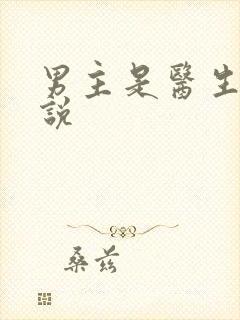 男主是醫生
說
桑兹